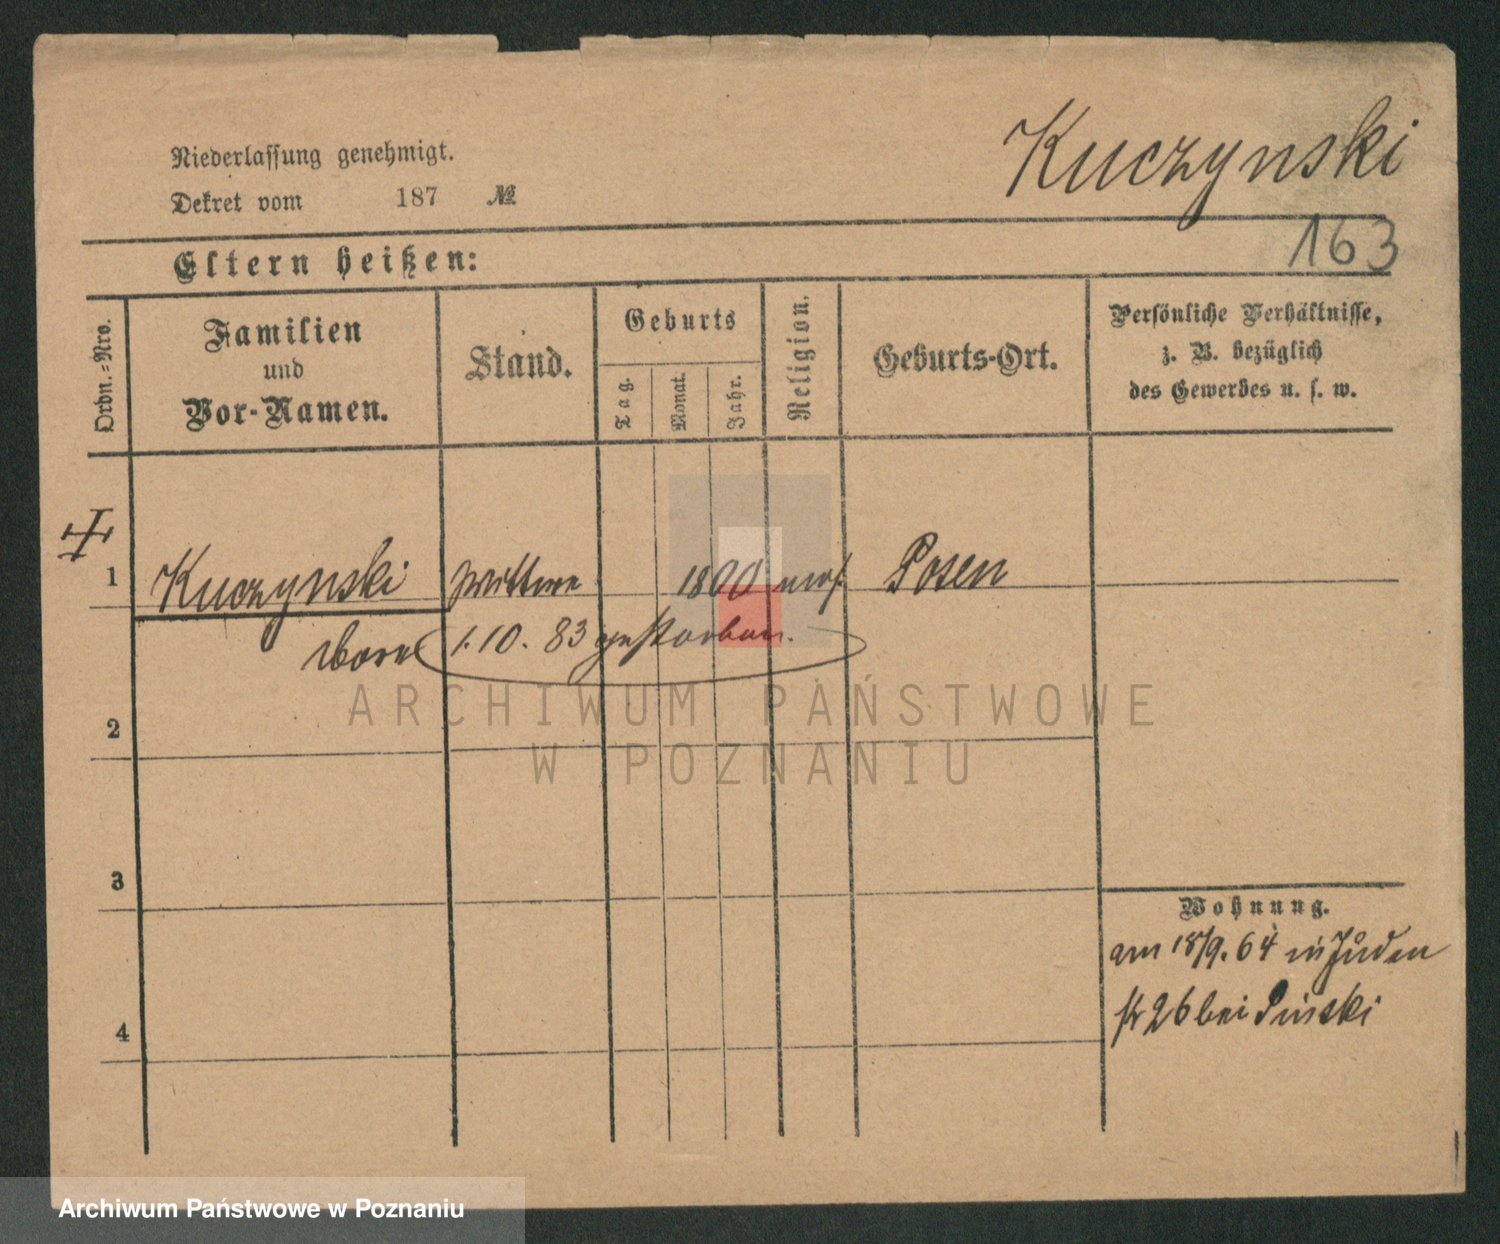 Kuczynski
Niederlassung genehmigt.
Dekret vom 187 №
163
Eltern heißen:
Ordn.-Nro.
Familien
und
Vor-Namen.
Stand.
Geburts
Tag.
Monat.
Jahr.
Religion.
Geburts-Ort.
Persönliche Verhältnisse,
z. B. bezüglich
des Gewerbes u. s. w.
1 Kuczynski Wittwe 1800 mos. Posen
1.10.83 gestorben.
2
3
4
Wohnung.
am 18/9.64 in Juden
str 26 bei Pinski
ARCHIWUM PAŃSTWOWE
W POZNANIU
Archiwum Państwowe w Poznaniu